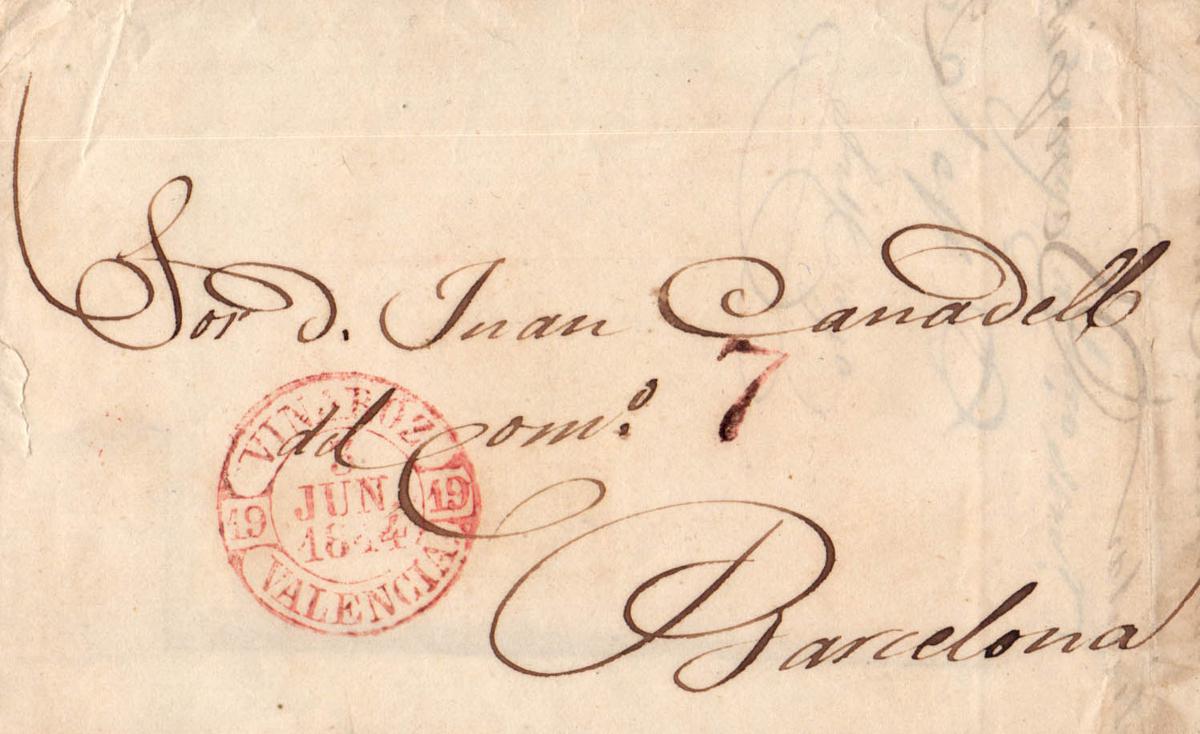 Sor. D. Juan Canadell
7
del Com.º
VINAROZ
JUN.
1844
19 19
VALENCIA
Barcelona